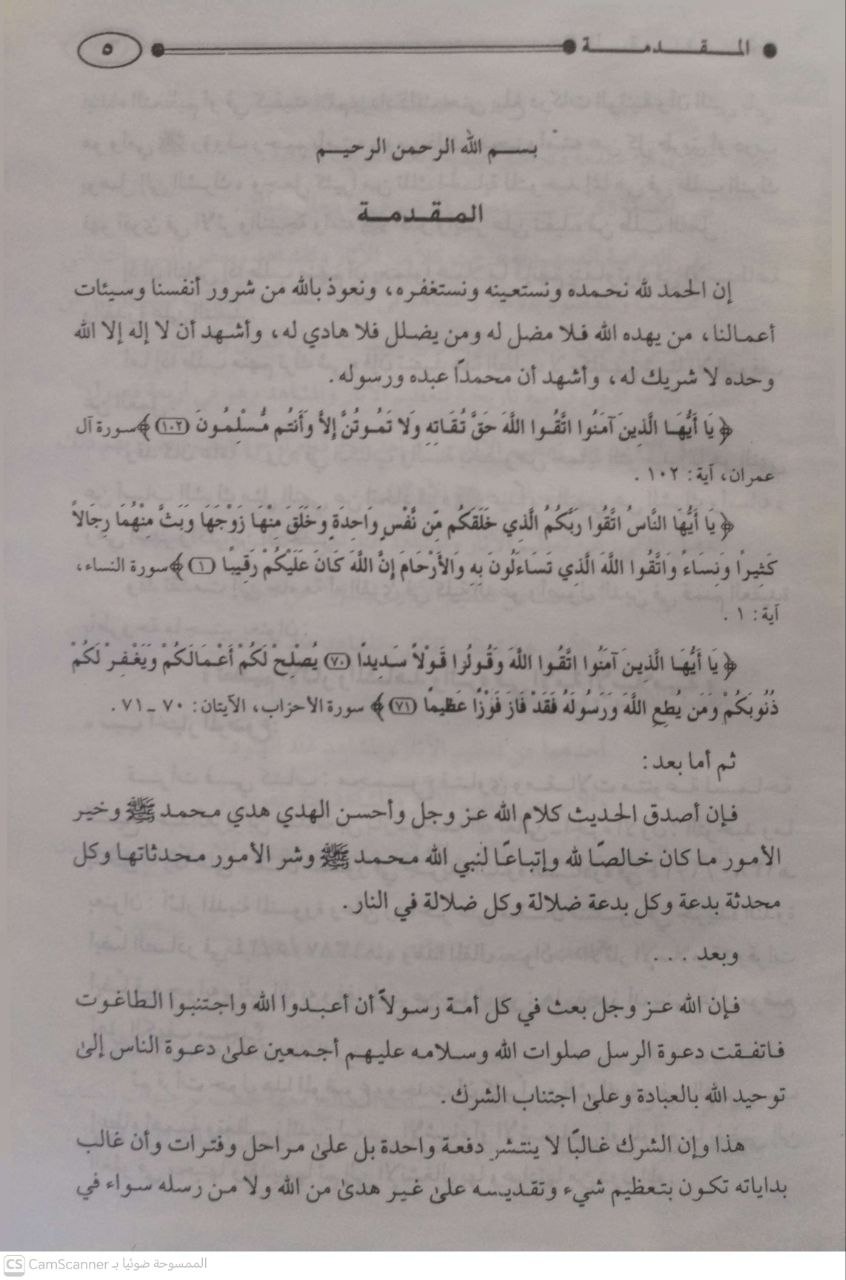 المقدمة ٥
بسم الله الرحمن الرحيم
المقدمة
إن الحمد لله نحمده ونستعينه ونستغفره، ونعوذ بالله من شرور أنفسنا وسيئات
أعمالنا، من يهده الله فلا مضل له ومن يضلل فلا هادي له، وأشهد أن لا إله إلا الله
وحده لا شريك له، وأشهد أن محمدًا عبده ورسوله.
﴿ يَا أَيُّهَا الَّذِينَ آمَنُوا اتَّقُوا اللَّهَ حَقَّ تُقَاتِهِ وَلَا تَمُوتُنَّ إِلاَّ وَأَنتُم مُّسْلِمُونَ (١٠٢) ﴾ سورة آل
عمران، آية: ١٠٢ .
﴿ يَا أَيُّهَا النَّاسُ اتَّقُوا رَبَّكُمُ الَّذِي خَلَقَكُم مِّن نَّفْسٍ وَاحِدَةٍ وَخَلَقَ مِنْهَا زَوْجَهَا وَبَثَّ مِنْهُمَا رِجَالاً
كَثِيرًا وَنِسَاءً وَاتَّقُوا اللَّهَ الَّذِي تَسَاءَلُونَ بِهِ وَالأَرْحَامَ إِنَّ اللَّهَ كَانَ عَلَيْكُمْ رَقِيبًا (١) ﴾ سورة النساء،
آية: ١ .
﴿ يَا أَيُّهَا الَّذِينَ آمَنُوا اتَّقُوا اللَّهَ وَقُولُوا قَوْلاً سَدِيدًا (٧٠) يُصْلِحْ لَكُمْ أَعْمَالَكُمْ وَيَغْفِرْ لَكُمْ
ذُنُوبَكُمْ وَمَن يُطِعِ اللَّهَ وَرَسُولَهُ فَقَدْ فَازَ فَوْزًا عَظِيمًا (٧١) ﴾ سورة الأحزاب، الآيتان: ٧٠ ـ ٧١ .
ثم أما بعد:
فإن أصدق الحديث كلام الله عز وجل وأحسن الهدي هدي محمد ﷺ وخير
الأمور ما كان خالصًا لله وإتباعًا لنبي الله محمد ﷺ وشر الأمور محدثاتها وكل
محدثة بدعة وكل بدعة ضلالة وكل ضلالة في النار.
وبعد . . .
فإن الله عز وجل بعث في كل أمة رسولاً أن أعبدوا الله واجتنبوا الطاغوت
فاتفقت دعوة الرسل صلوات الله وسلامه عليهم أجمعين علىٰ دعوة الناس إلىٰ
توحيد الله بالعبادة وعلىٰ اجتناب الشرك.
هذا وإن الشرك غالبًا لا ينتشر دفعة واحدة بل علىٰ مراحل وفترات وأن غالب
بداياته تكون بتعظيم شيء وتقديسه علىٰ غير هدىٰ من الله ولا من رسله سواء في
CS CamScanner الممسوحة ضوئيا بـ